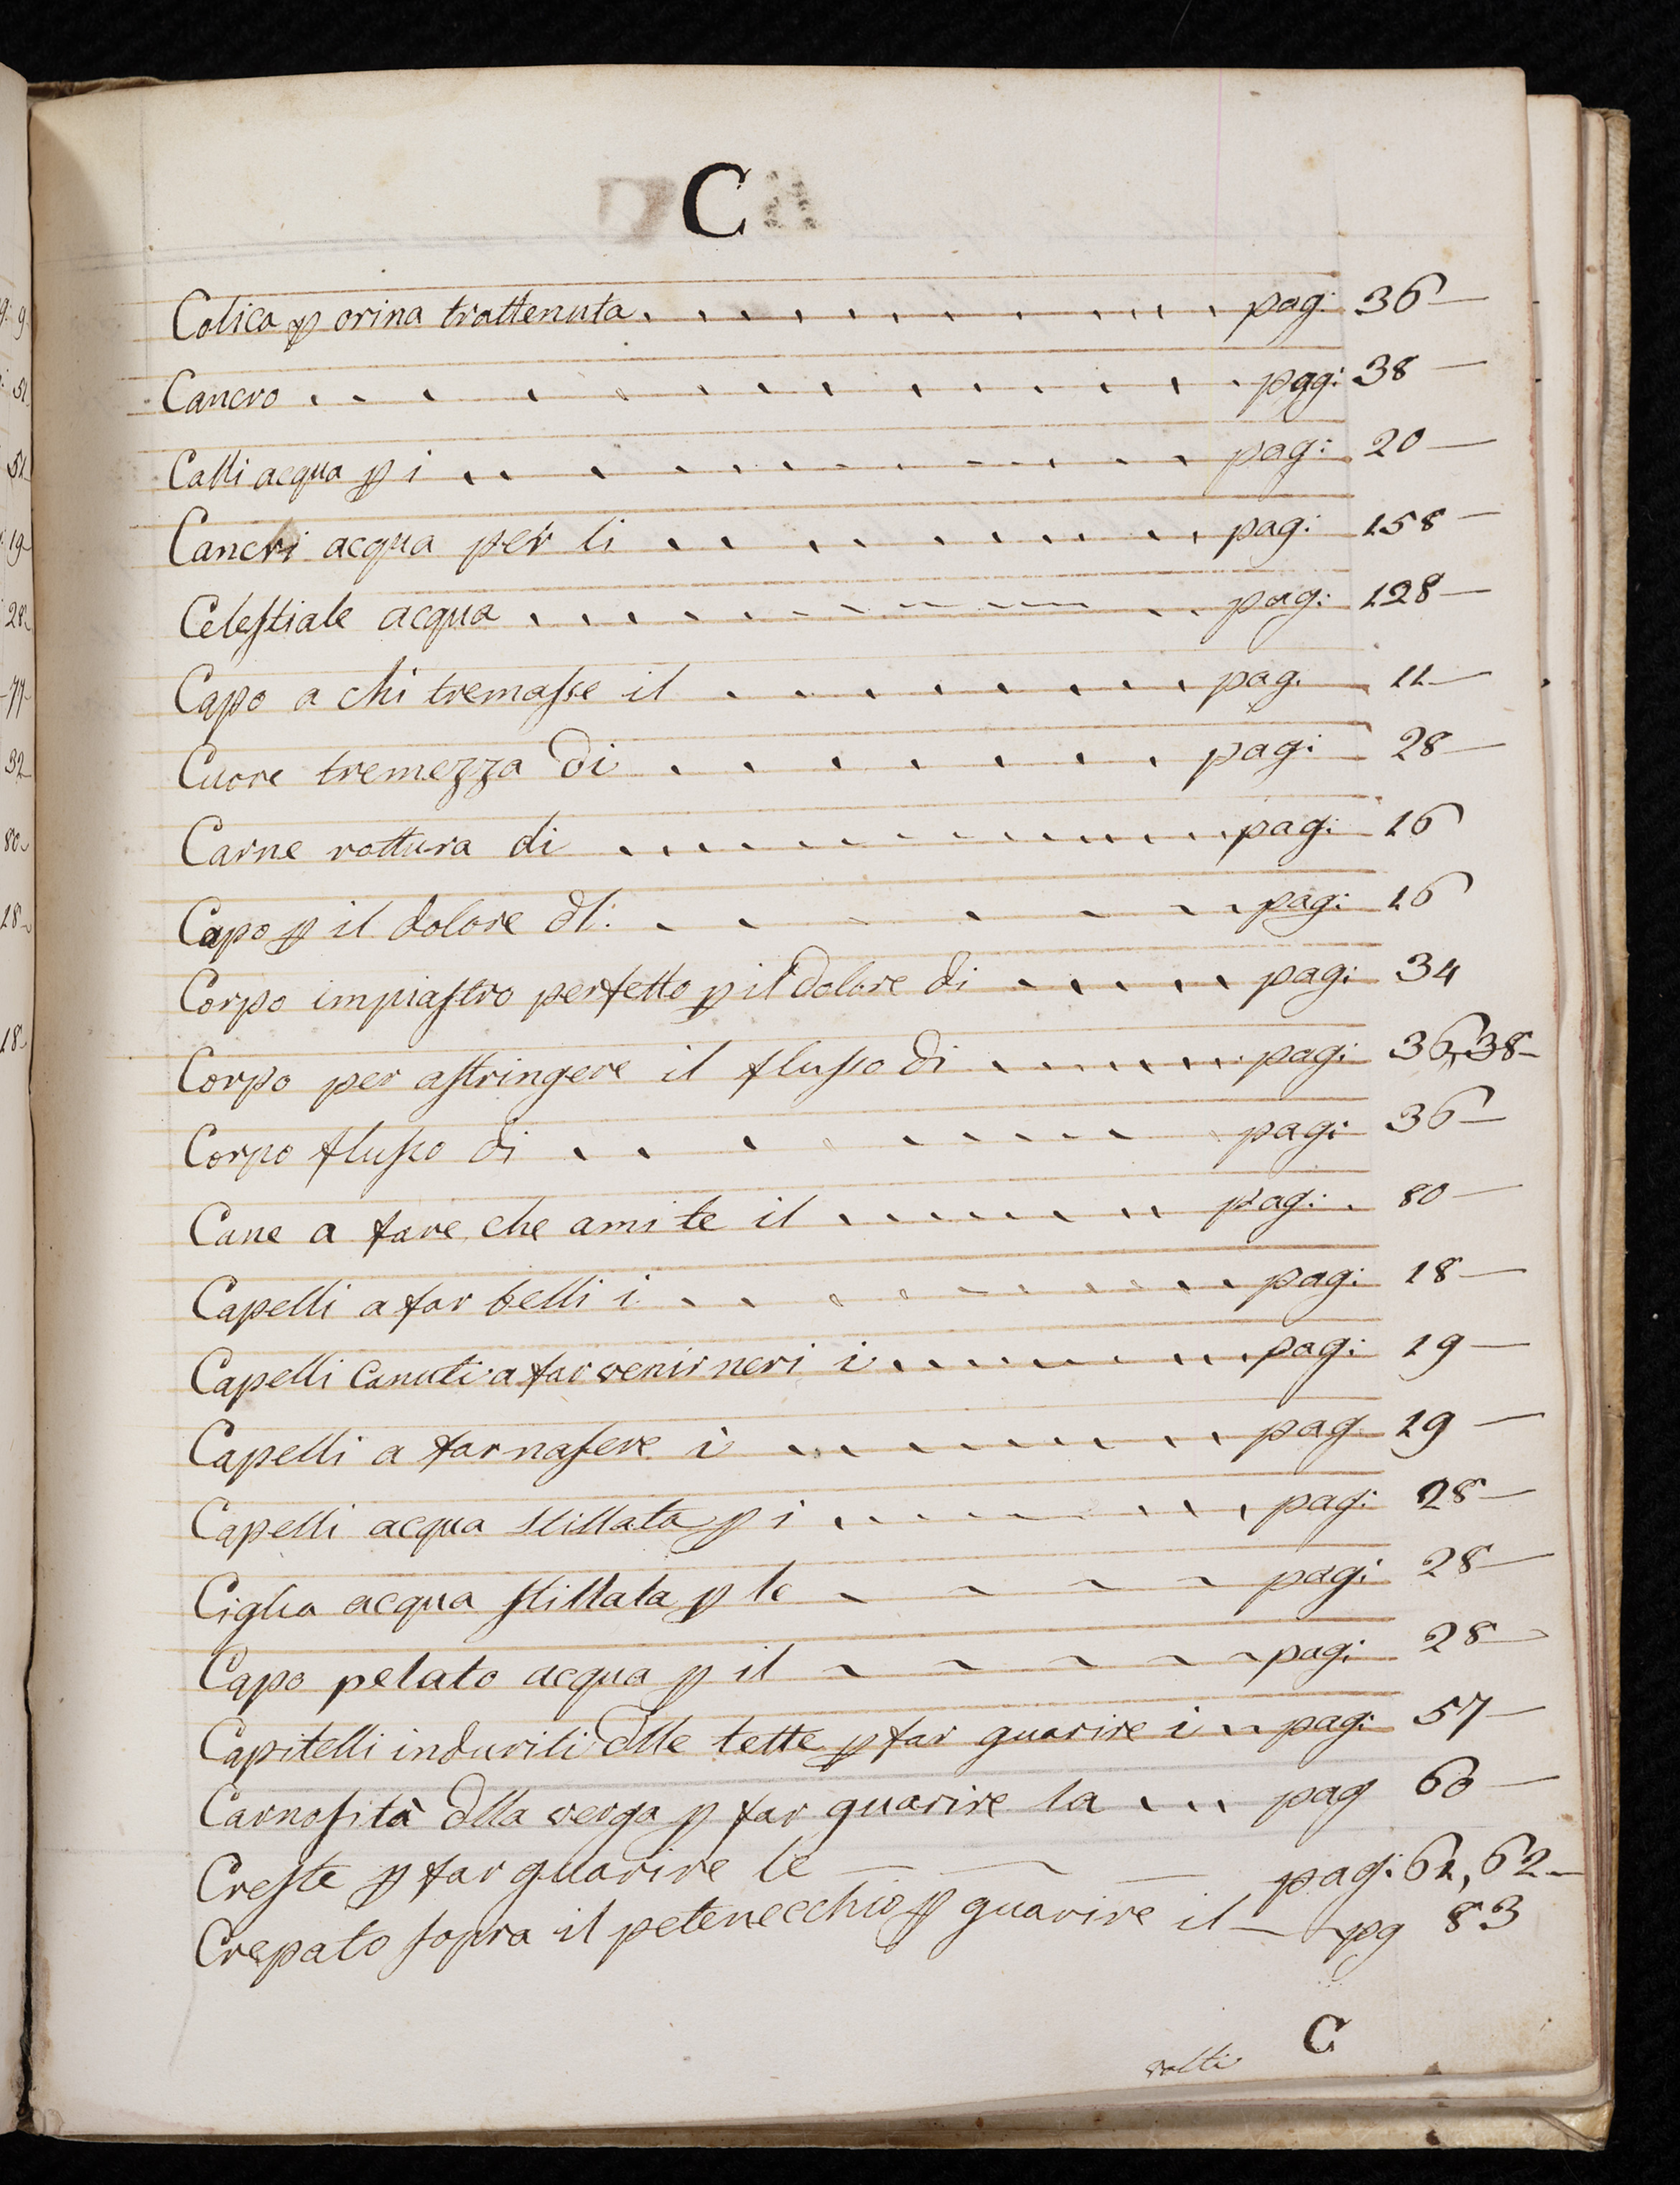 C
Colica ꝑ orina trattenuta . . . . . . . . . . . pag: 36 —
Cancro . . . . . . . . . . . . pag: 38 —
Calli acqua ꝑ i . . . . . . . . . . . pag: 20 —
Cancri acqua per li . . . . . . . . . . pag: 158 —
Celeſtiale acqua . . . . . . . . . . . pag: 128 —
Capo a chi tremaſse il . . . . . . . . pag. 11 —
Cuore tremezza di . . . . . . . pag: 28 —
Carne rottura di . . . . . . . . . . . . pag: 16
Capo ꝑ il dolore dl: . . . . . . . pag: 16
Corpo impiaſtro perfetto ꝑ il dolore di . . . . . pag: 34
Corpo per aſtringere il fluſso di . . . . . . . pag: 36, 38 —
Corpo fluſso di . . . . . . . . . pag: 36 —
Cane a fare che ami te il . . . . . . . . pag: . 80 —
Capelli a far belli i . . . . . . . . . . pag: 18 —
Capelli canuti a far venir neri i . . . . . . . . . pag: 19 —
Capelli a far naſere i . . . . . . . . . . pag 19 —
Capelli acqua stillata ꝑ i . . . . . . . . pag: 28 —
Ciglia acqua ſtillata ꝑ le . . . . pag: 28 —
Capo pelato acqua ꝑ il . . . . . pag: 28 —
Capitelli induriti dlle tette ꝑ far guarire i . . pag: 57 —
Carnoſità dlla verga ꝑ far guarire la . . . pag 60 —
Creſte ꝑ far guarire le — — — pag: 61, 62 —
Crepato ſopra il petenecchio ꝑ guarire il — — pg 83
C
volti